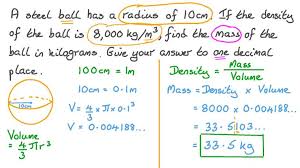 A steel ball has a radius of 10cm. If the density
of the ball is 8,000 kg/m³, find the mass of the
ball in kilograms. Give your answer to one decimal
place.
100cm = 1m
10cm = 0.1m
10cm
V = 4/3 × π × 0.1³
V = 0.004188...
Volume
= 4/3 πr³
Density = Mass/Volume
Mass = Density × Volume
= 8000 × 0.004188...
= 33.5103...
= 33.5 kg